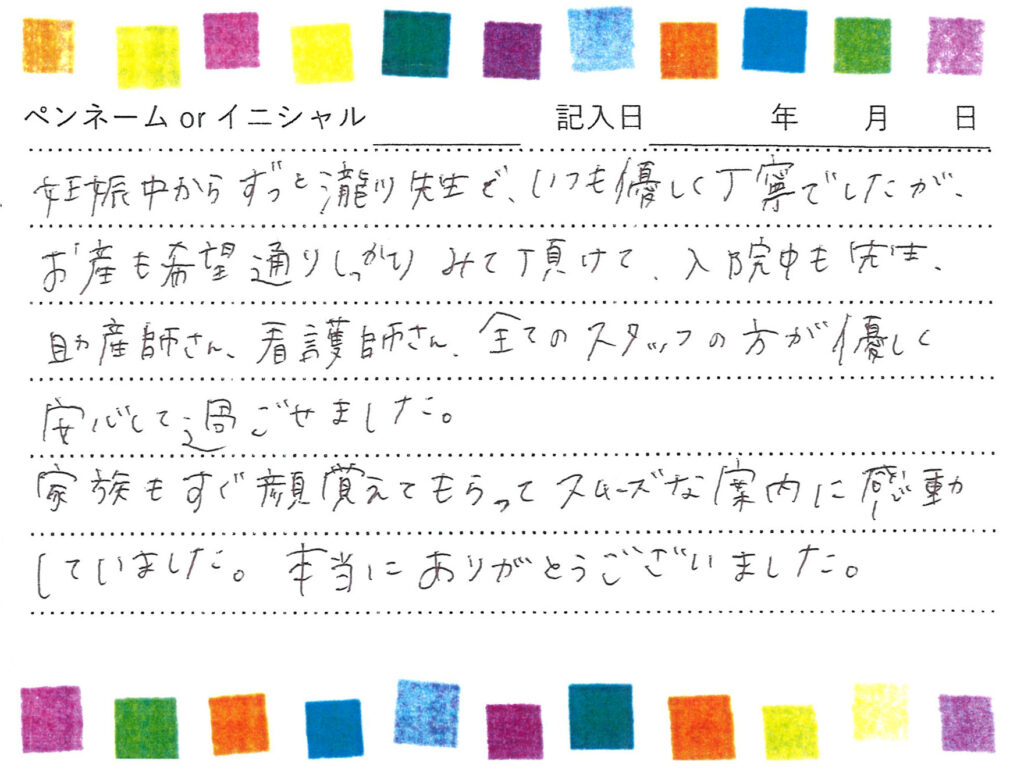 ペンネーム or イニシャル 記入日 年 月 日
妊娠中からずっと瀧川先生で、いつも優しく丁寧でしたが、
お産も希望通りしっかりみて頂けて、入院中も先生、
助産師さん、看護師さん、全てのスタッフの方が優しく
安心して過ごせました。
家族もすぐ顔覚えてもらってスムーズな案内に感動
していました。本当にありがとうございました。